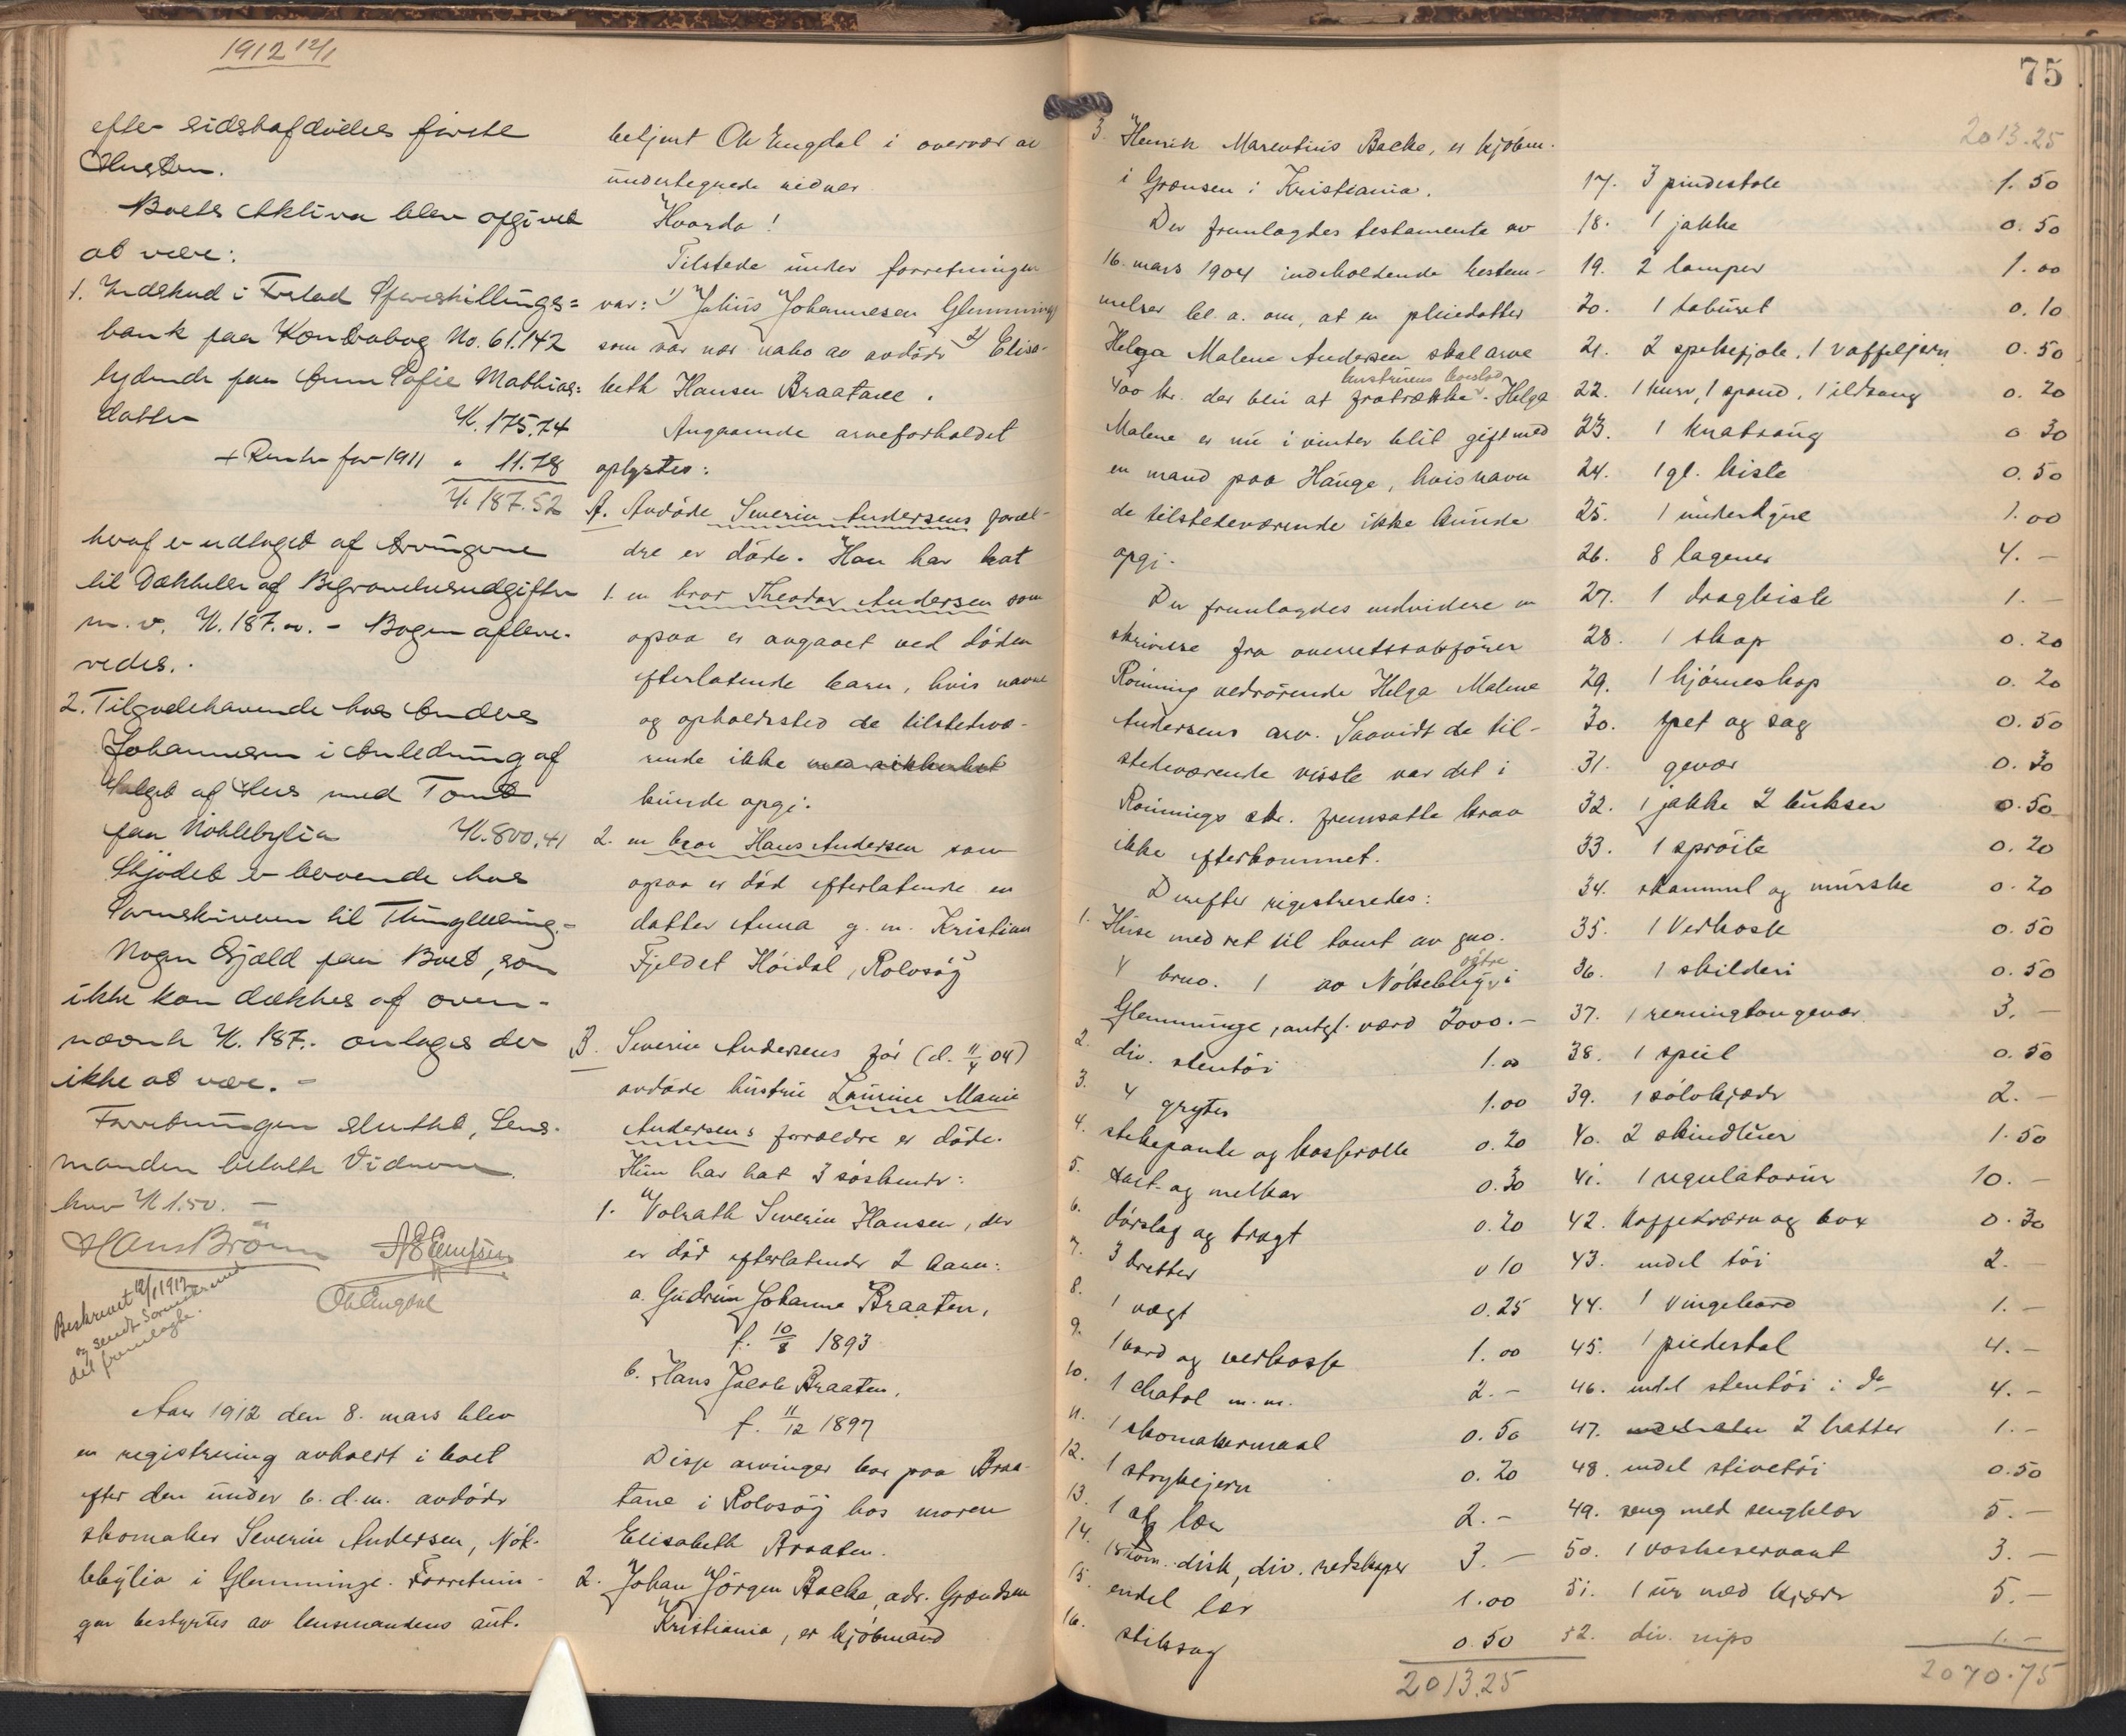 1912 12/1
efter sidstafdödes förste
Husbon.
Boets Aktiva blev opgivet
at være:
1. Indskud i Fr.stad Spareskillings=
bank paa Kontrabog No. 61.142
lydende paa Anne Sofie Mathias=
datter Kr. 175,74
+ Renter for 1911 " 11.78
Kr. 187.52
hvoraf er udtaget af Arvingerne
til Dækkelse af Begravelsesudgifter
m. v. Kr. 187.00. - Bogen afleve-
redes.
2. Tilgodehavende hos Anders
Johannesen i Anledning af
Salget af Hus med Tomt
paa Nöklebylia Kr. 800,41
Skjödet er beroende hos
Sorenskriveren til Thinglæsning.-
Nogen Gjæld paa Boet, som
ikke kan dækkes af oven-
nævnte Kr. 187.- antages der
ikke at være. -
Forretningen sluttet, Lens-
manden betalte Vidnerne
hver Kr 1.50. -
Hans Brönn
Ole Engdal
Beskrevet 12/1 1912
og sendt Sorenskr. med
det fremlagte.
Aar 1912 den 8. mars blev
en registrering avholdt i boet
efter den under 6. d.m. avdöde
skomaker Severin Andersen, Nök-
lebylia i Glemminge. Forretnin-
gen bestyrtes av lensmandens aut.
betjent Ole Engdal i overvær av
undertegnede vidner
Hvorda!
Tilstede under forretningen
var: 1) Julius Johannesen Glemminge
som var nær nabo av avdöde 2) Elisa-
beth Hansen Braatane.
Angaaende arveforholdet
oplystes:
A. Avdöde Severin Andersens foræl-
dre er döde. Han har hat
1. en bror Theodor Andersen som
ogsaa er avgaaet ved döden
efterlatende barn, hvis navne
og opholdssted de tilstedevæ-
rende ikke med sikkerhet
kunde opgi.
2. en bror Hans Andersen som
ogsaa er död efterlatende en
datter Anna g. m. Kristian
Fjeldet Höidal, Rolvsöy
B. Severin Andersens för (d. 11/4 04)
avdöde hustru Laurine Marie
Andersens forældre er döde.
Hun har hat 3 söskende:
1. Volrath Severin Hansen, der
er död efterlatende 2 barn:
a. Gudrun Johanne Braaten,
f. 10/8 1893
b. Hans Jacob Braaten,
f. 11/12 1897
Disse arvinger bor paa Braa-
tane i Rolvsöy hos moren
Elisabeth Braaten.
2. Johan Jörgen Backe, adr. Grændsen
Kristiania, er kjöbmand
75
3. Henrik Marentius Backe, er kjöbm.
i Grænsen i Kristiania.
Der fremlagdes testamente av
16. mars 1904 indeholdende bestem-
melser bl. a. om, at en pleiedatter
Helga Malene Andersen skal arve
hustruens barslod
400 kr. der blir at fratrække. Helga
Malene er nu i vinter blit gift med
en mand paa Hauge, hvis navn
de tilstedeværende ikke kunde
opgi.
Der fremlagdes endvidere en
skrivelse fra overretssakförer
Rönning vedrörende Helga Malene
Andersens arv. Saavidt de til-
stedeværende visste var det i
Rönnings skr. fremsatte krav
ikke efterkommet.
Derefter registreredes:
1. Huse med ret til tomt av gno.
4 brno. 1 av Nökleby östre i
Glemminge, antgl. værd 2000.-
2. div. stentöi 1.00
3. 4 gryter 1.00
4. stekepande og kasserolle 0.20
5. salt- og melkar 0.30
6. dörslag og tragt 0.20
7. 3 bretter 0 10
8. 1 vægt 0.25
9. 1 bord og verkasse 1.00
10. 1 chatol m. m. 2.-
11. 1 skomakermaal 0.50
12. 1 strykejern 0.20
13. 1 læs 2.-
14. 1 skom. disk, div. redskaper 3.-
15. endel lær 1.00
16. stiksag 0.50
2013.25
2013.25
17. 3 pindestole 1.50
18. 1 jakke 0.50
19. 2 lamper 1.00
20. 1 taburet 0.10
21. 2 spekefjole, 1 vaffeljern 0.50
22. 1 kurv, 1 spand, 1 ildtang 0.20
23. 1 knaksaug 0 30
24. 1 gl. kiste 0.50
25. 1 underdyne 1.00
26. 8 lagener 4.-
27. 1 dragkiste 1.-
28. 1 skap 0.20
29. 1 hjörneskap 0.20
30. spet og sag 0.50
31. gevær 0.30
32. 1 jakke 2 bukser 0.50
33. 1 spröite 0.20
34. skammel og murske 0.20
35. 1 Verkasse 0.50
36. 1 skilderi 0.50
37. 1 remingtongevær 3.-
38. 1 speil 0.50
39. 1 sölvkjede 2.-
40. 2 skindluer 1.50
41. 1 regulatorur 10.-
42. kaffekværn og box 0.30
43. endel töi 2.
44. 1 vingebord 1.-
45. 1 piedestal 4.-
46. endel stentöi i do 4.-
47. 2 hatter 1.-
48. endel stivetöi 0.50
49. seng med sengklær 5.-
50. 1 vaskeservant 3.-
51. 1 ur med kjæde 5.-
52. div. nips 1.-
2070.75